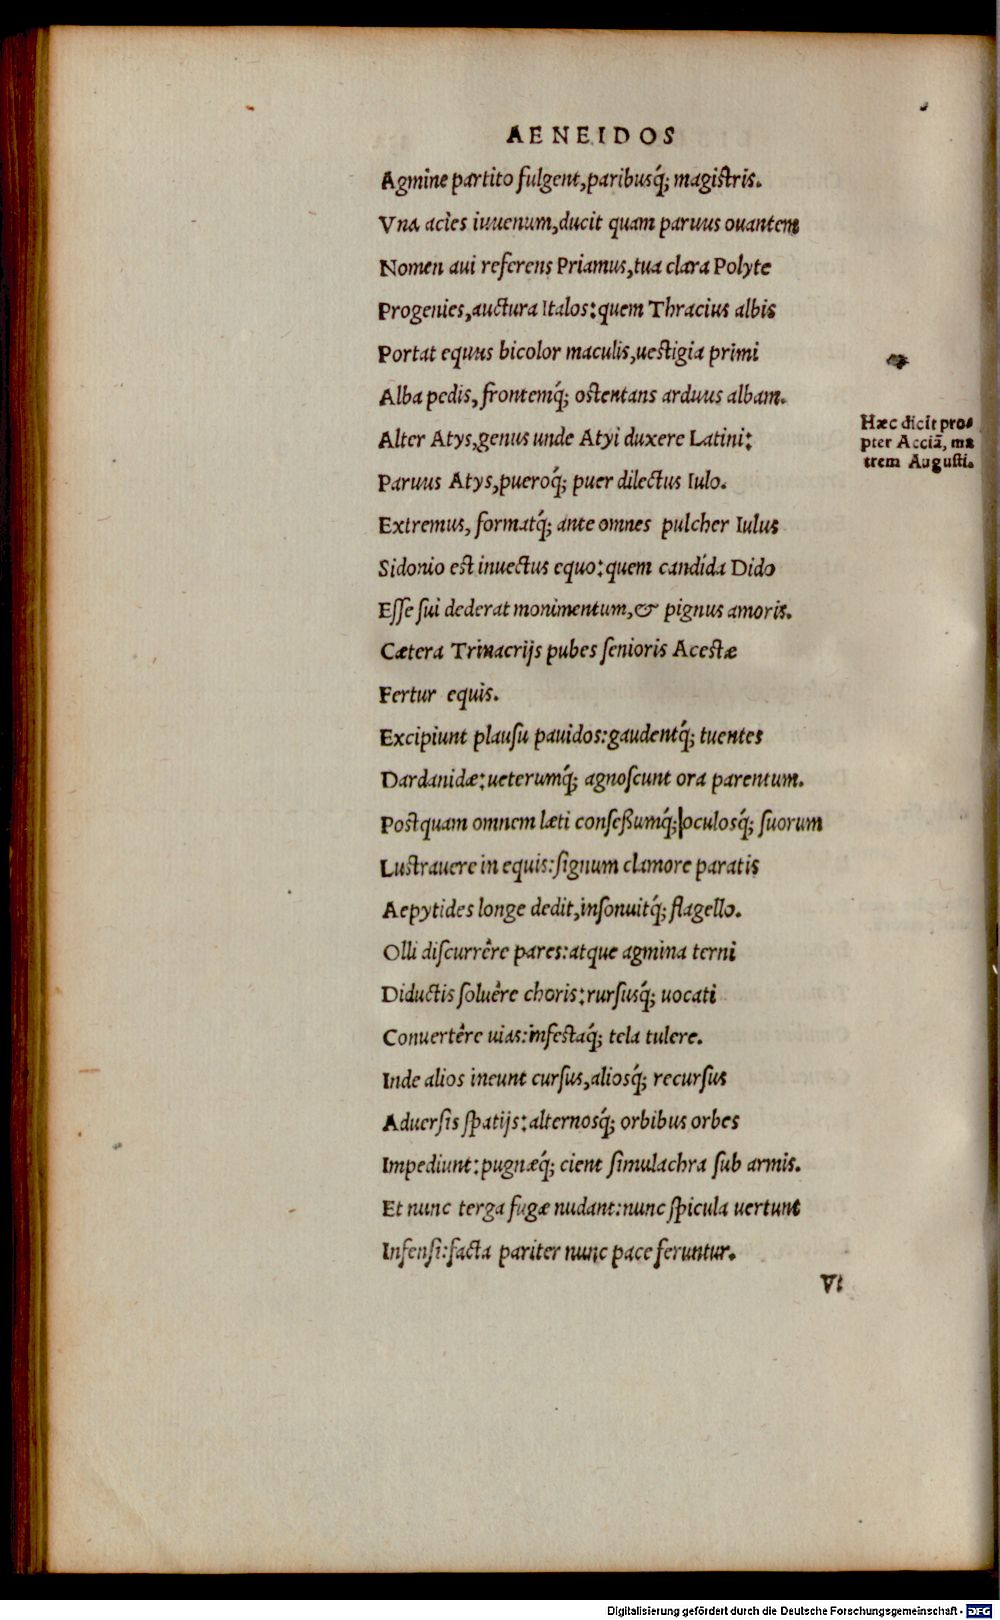 AENEIDOS
Agmine partito fulgent,paribusq́; magistris.
Vna acies iuuenum,ducit quam paruus ouantem
Nomen aui referens Priamus,tua clara Polyte
Progenies,auctura Italos:quem Thracius albis
Portat equus bicolor maculis,uestigia primi
Alba pedis, frontemq́; ostentans arduus albam.
Alter Atys,genus unde Atyi duxere Latini:
Paruus Atys,pueroq́; puer dilectus Iulo.
Extremus, formatq́; ante omnes pulcher Iulus
Sidonio est inuectus equo:quem candida Dido
Esse sui dederat monimentum,& pignus amoris.
Cætera Trinacrijs pubes senioris Acestæ
Fertur equis.
Excipiunt plausu pauidos:gaudentq́; tuentes
Dardanidæ:ueterumq́; agnoscunt ora parentum.
Postquam omnem læti conseßumq́; oculosq́; suorum
Lustrauere in equis:signum clamore paratis
Aepytides longe dedit,insonuitq́; flagello.
Olli discurrêre pares:atque agmina terni
Diductis soluêre choris:rursusq́; uocati
Conuertêre uias:infestaq́; tela tulere.
Inde alios ineunt cursus,aliosq́; recursus
Aduersis spatijs:alternosq́; orbibus orbes
Impediunt:pugnæq́; cient simulachra sub armis.
Et nunc terga fugæ nudant:nunc spicula uertunt
Infensi:facta pariter nunc pace feruntur.
Vt
Hæc dicit pro-
pter Acciā, ma
trem Augusti.
Digitalisierung gefördert durch die Deutsche Forschungsgemeinschaft - DFG